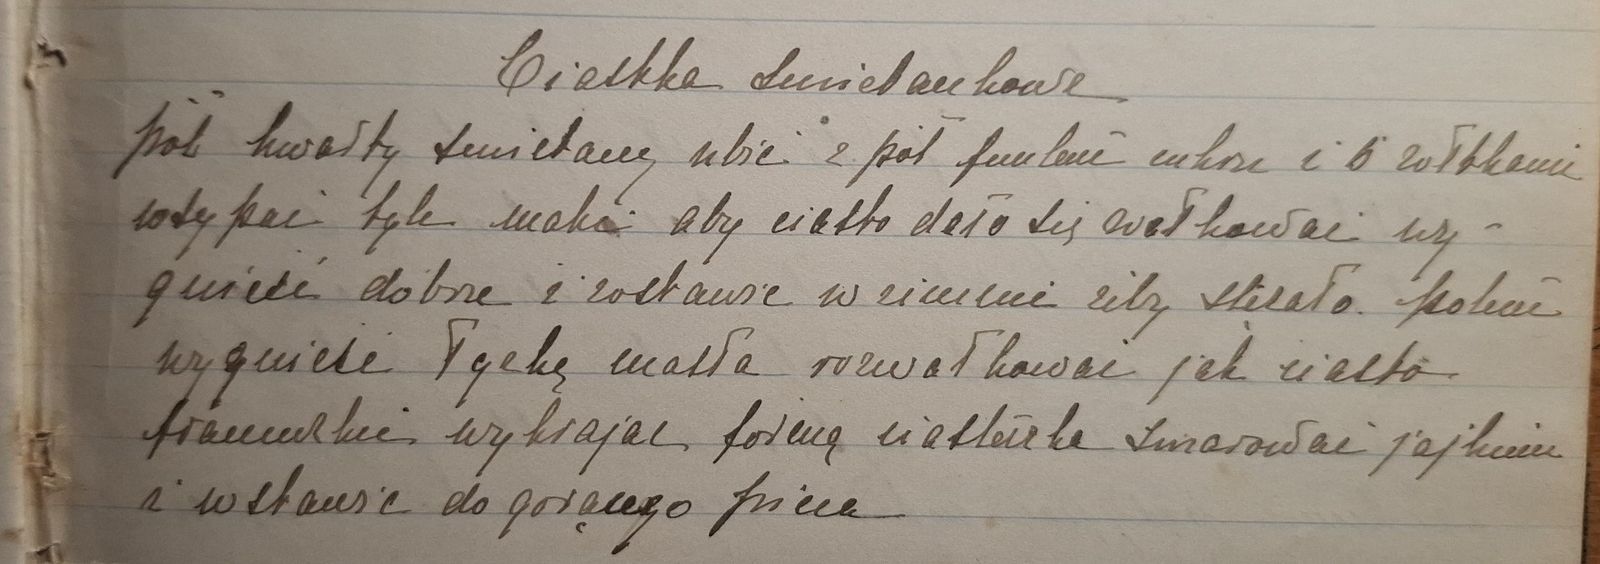 Ciastka śmietankowe
pół kwarty śmietany ubić z pół funtem cukru i 5 żółtkami
wsypać tyle mąki aby ciasto dało się wałkować wy-
gnieść dobrze i zostawić w zimnie żeby stężało. potem
wygnieść łyżkę masła rozwałkować jak ciasto
francuzkie wykrajać formą ciasteczka smarować jajkiem
i wstawić do gorącego pieca